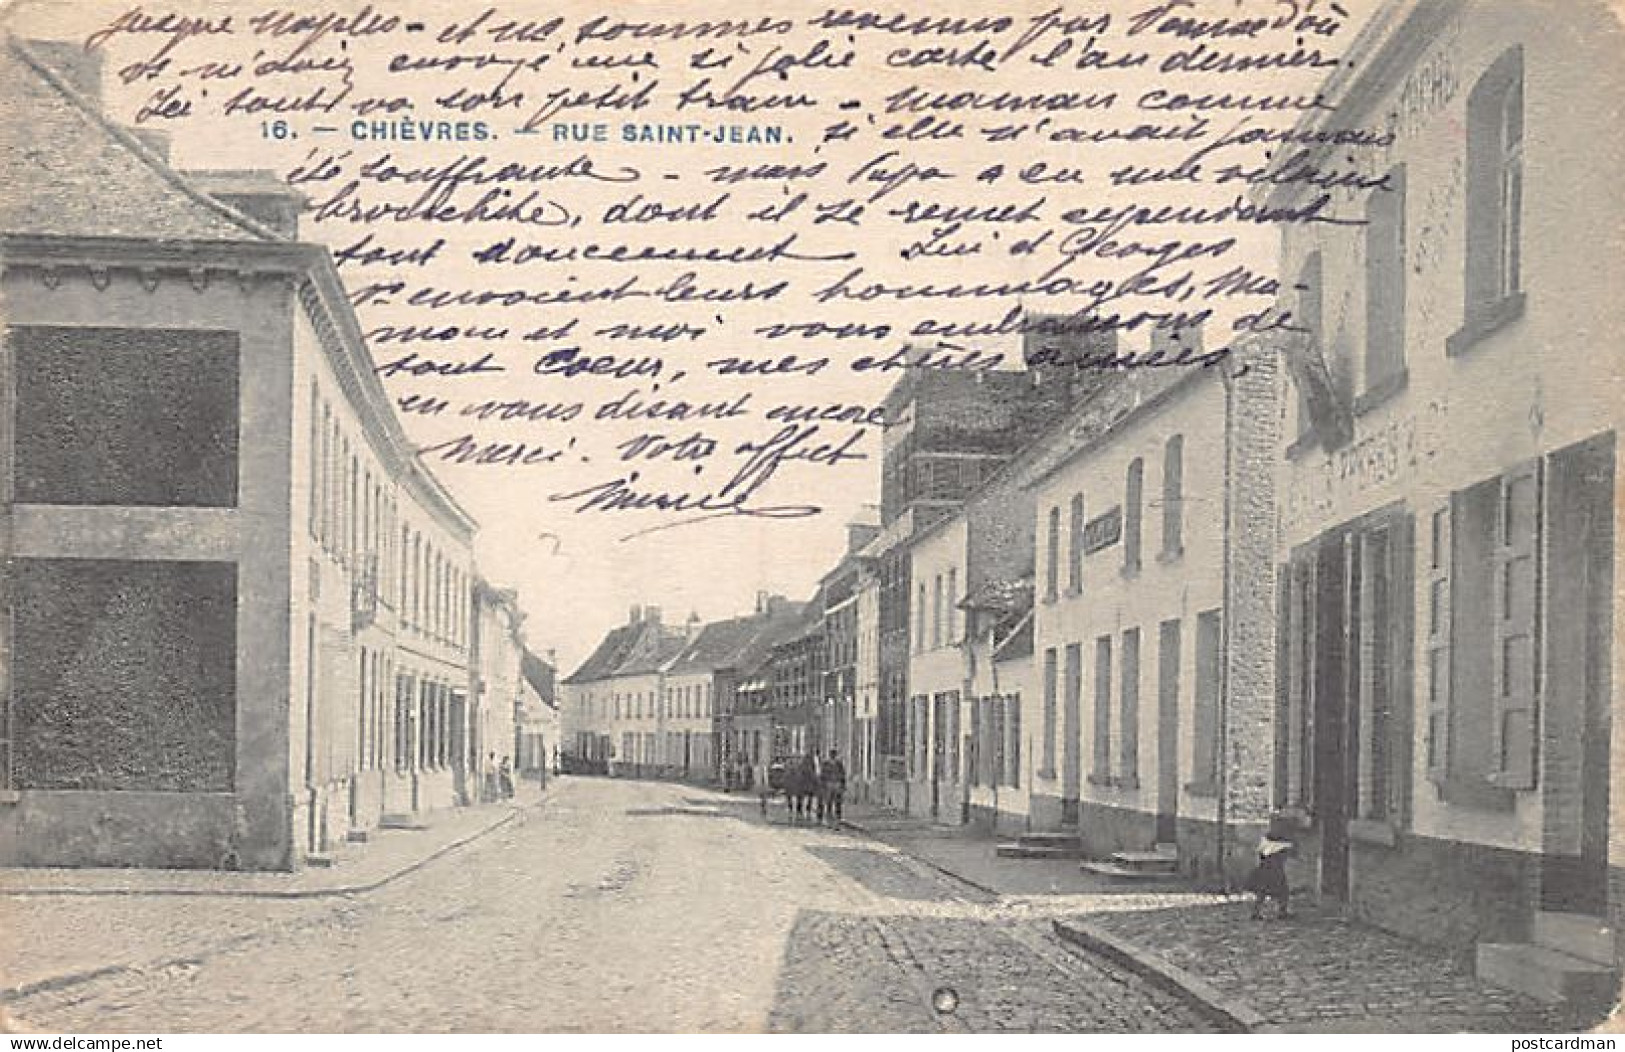 jusque Naples - et ns sommes revenus par Venise D'où
vs m'aviez envoyé une si jolie carte l'an dernier.
Ici tout va son petit train - Maman comme
16. — CHIÈVRES. — RUE SAINT-JEAN.
si elle n'avait jamais
été souffrante - mais Papa a eu une vilaine
bronchite, dont il se remet cependant
tout doucement. Lui et Georges
vs envoient leurs hommages, Ma-
man et moi vous embrassons de
tout Coeur, mes chères amies,
en vous disant encore
Merci. Votre affect
postcardman